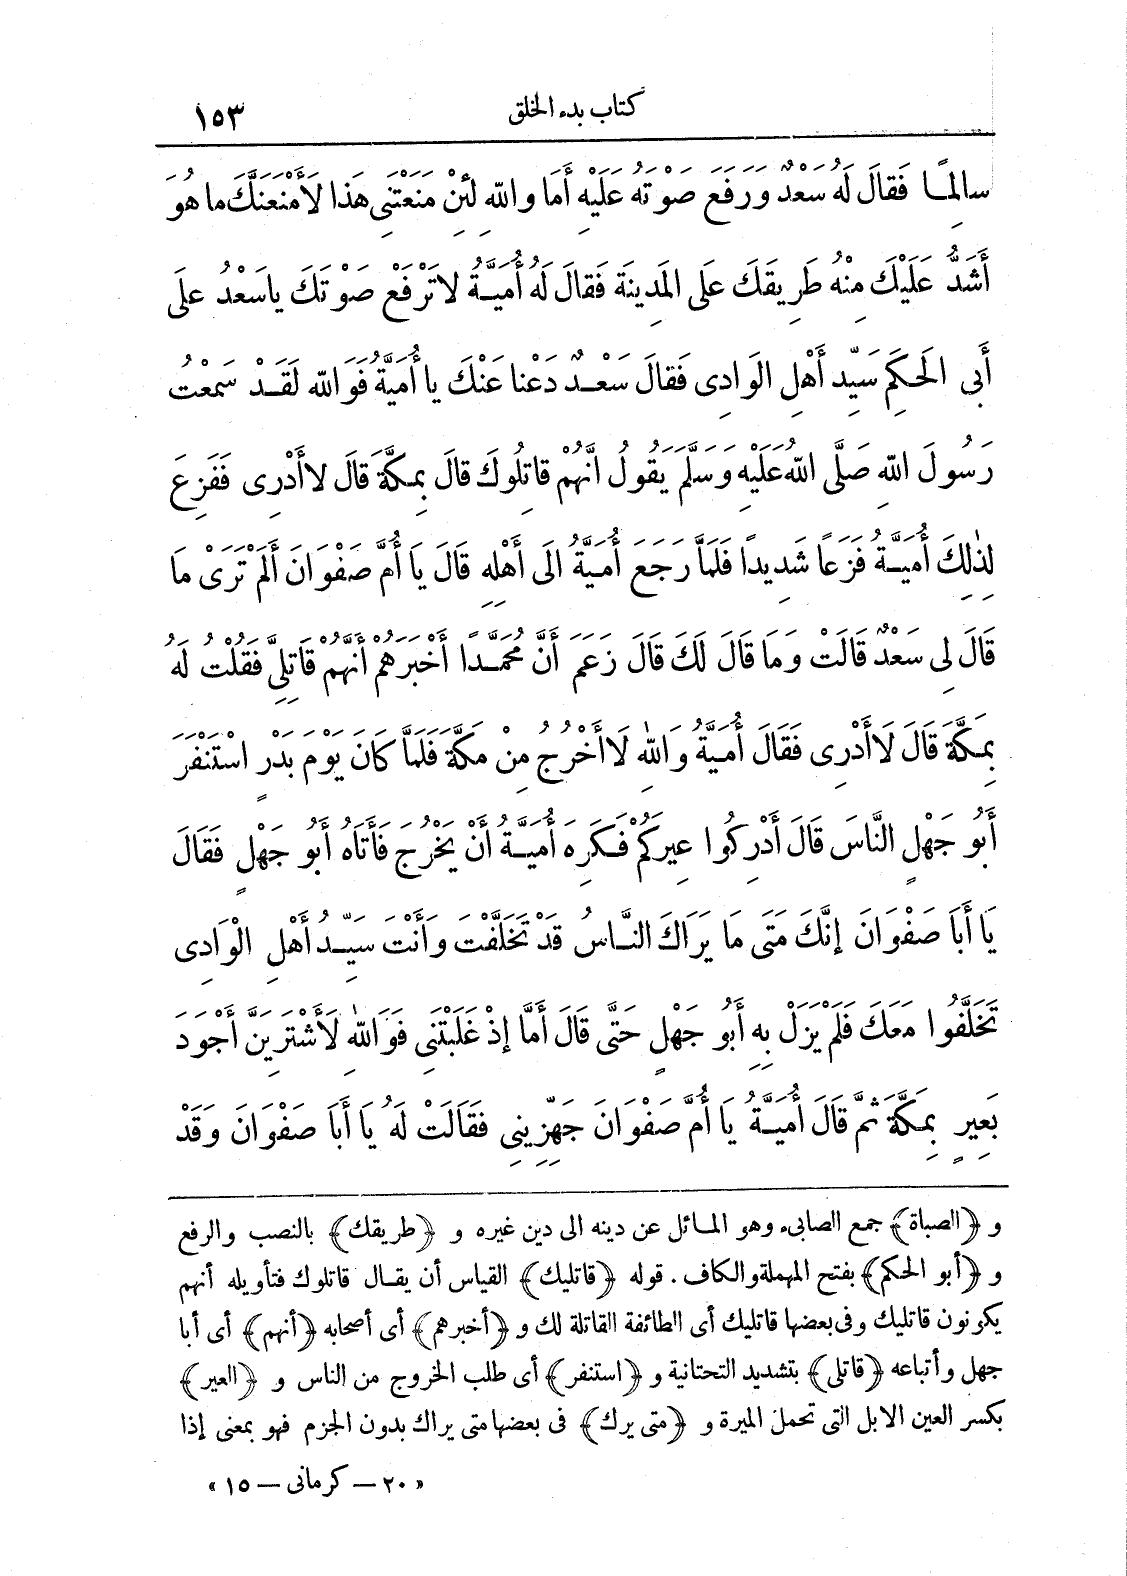 كتاب بدء الخلق ١٥٣
سالِمًا فَقالَ لَهُ سَعْدٌ وَرَفَعَ صَوْتَهُ عَلَيْهِ أَمَا واللهِ لَئِنْ مَنَعْتَنِي هَذا لَأَمْنَعَنَّكَ ما هُوَ
أَشَدُّ عَلَيْكَ مِنْهُ طَرِيقَكَ عَلَى المَدِينَةِ فَقالَ لَهُ أُمَيَّةُ لا تَرْفَعْ صَوْتَكَ يا سَعْدُ على
أَبِى الحَكَمِ سَيِّدِ أَهْلِ الوَادِى فَقالَ سَعْدٌ دَعْنا عَنْكَ يا أُمَيَّةُ فَوَ اللهِ لَقَدْ سَمِعْتُ
رَسُولَ اللهِ صَلَّى اللهُ عَلَيْهِ وَسَلَّمَ يَقُولُ أَنَّهُمْ قاتِلُوكَ قالَ بِمَكَّةَ قالَ لا أَدْرِى فَفَزِعَ
لِذٰلِكَ أُمَيَّةُ فَزَعًا شَدِيدًا فَلَمَّا رَجَعَ أُمَيَّةُ الَى أَهْلِهِ قالَ يا أُمَّ صَفْوَانَ أَلَمْ تَرَىْ ما
قَالَ لِى سَعْدٌ قالَتْ وَمَا قالَ لَكَ قالَ زَعَمَ أَنَّ مُحَمَّدًا أَخْبَرَهُمْ أَنَّهُمْ قَاتِلِىَّ فَقُلْتُ لَهُ
بِمَكَّةَ قالَ لَا أَدْرِى فَقَالَ أُمَيَّةُ وَاللهِ لَا أَخْرُجُ مِنْ مَكَّةَ فَلَمَّا كانَ يَوْمَ بَدْرٍ اسْتَنْفَرَ
أَبُو جَهْلٍ النَّاسَ قَالَ أَدْرِكُوا عِيرَكُمْ فَكَرِهَ أُمَيَّةُ أَنْ يَخْرُجَ فَأَتَاهُ أَبُو جَهْلٍ فَقَالَ
يَا أَبَا صَفْوَانَ إنَّكَ مَتَى مَا يَرَاكَ النَّاسُ قَدْ تَخَلَّفْتَ وَأَنْتَ سَيِّدُ أَهْلِ الْوَادِى
تَخَلَّفُوا مَعَكَ فَلَمْ يَزَلْ بِهِ أَبُو جَهْلٍ حَتَّى قَالَ أَمَّا إذْ غَلَبْتَنِى فَوَ اللهِ لَأَشْتَرِيَنَّ أَجْوَدَ
بَعِيرٍ بِمَكَّةَ ثُمَّ قَالَ أُمَيَّةُ يَا أُمَّ صَفْوَانَ جَهِّزِينِى فَقَالَتْ لَهُ يَا أَبَا صَفْوَانَ وَقَدْ
و ﴿الصباة﴾ جمع الصابىء وهو المائل عن دينه الى دين غيره و ﴿طريقك﴾ بالنصب والرفع
و ﴿أبو الحكم﴾ بفتح المهملة والكاف . قوله ﴿قاتليك﴾ القياس أن يقال قاتلوك فتأويله أنهم
يكونون قاتليك وفى بعضها قاتليك أى الطائفة القاتلة لك و ﴿أخبرهم﴾ أى أصحابه ﴿أنهم﴾ أى أبا
جهل وأتباعه ﴿قاتلى﴾ بتشديد التحتانية و ﴿استنفر﴾ أى طلب الخروج من الناس و ﴿العير﴾
بكسر العين الابل التى تحمل الميرة و ﴿متى يرك﴾ فى بعضها متى يراك بدون الجزم فهو بمعنى إذا
« ٢٠ — كرمانى — ١٥ »